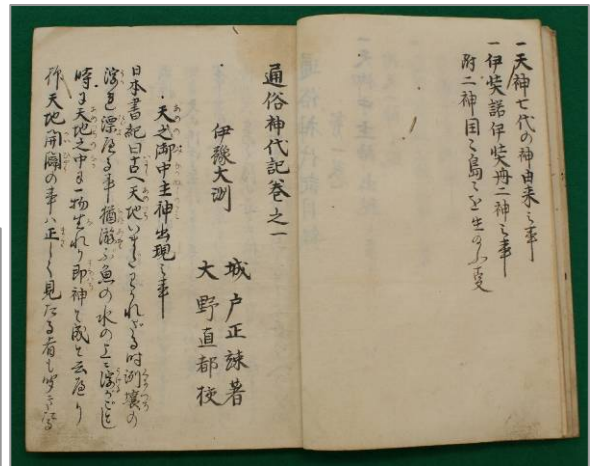 一天神七代の神由来之事
一伊弉諾伊弉冊二神之事
附二神国〻島〻を生のふ事
通俗神代記巻之一
伊豫大洲
城戸正諫著
大野直都校
天之御中主神出現之事
日本書紀曰古へ天地いまたわかれざる時洲壌の
浮れ漂へる事猶游ふ魚の水の上に浮がごとし
時に天地之中に一物生れり即神と成と云へり
天地開闢の事ハ正しく見たる者も